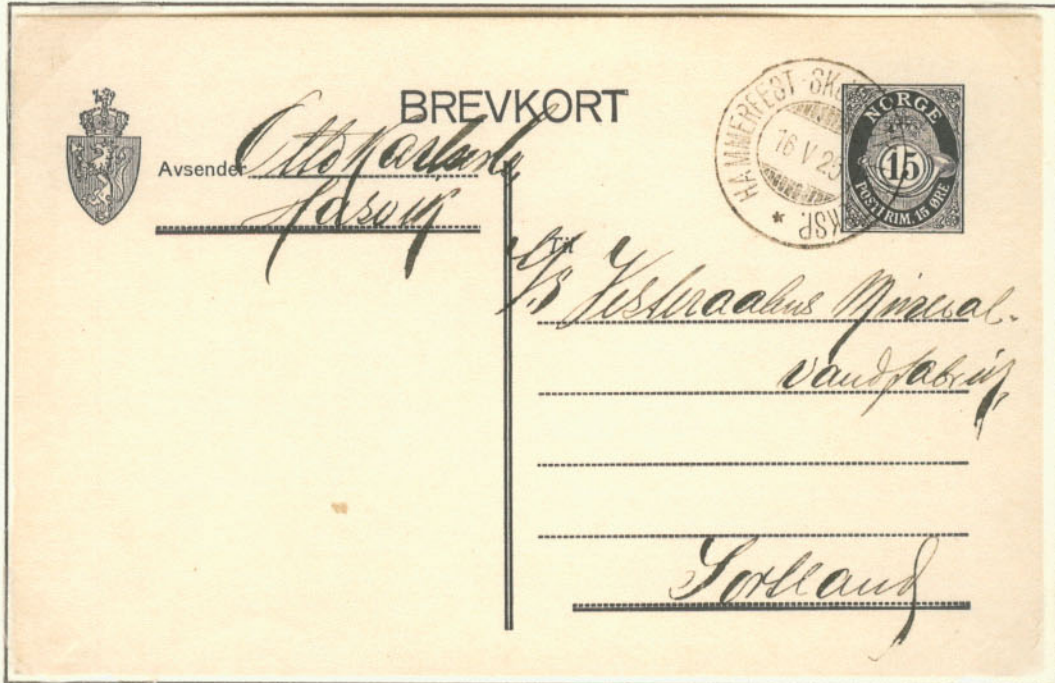 BREVKORT
Avsender Otto Karlsen
Hasvik
HAMMERFEST-SK
16 V 25
KSP.
*
NORGE
15
POSTFRIM. 15 ØRE
Til
A/S Vesteraalens Mineral-
vandfabrik
Sortland